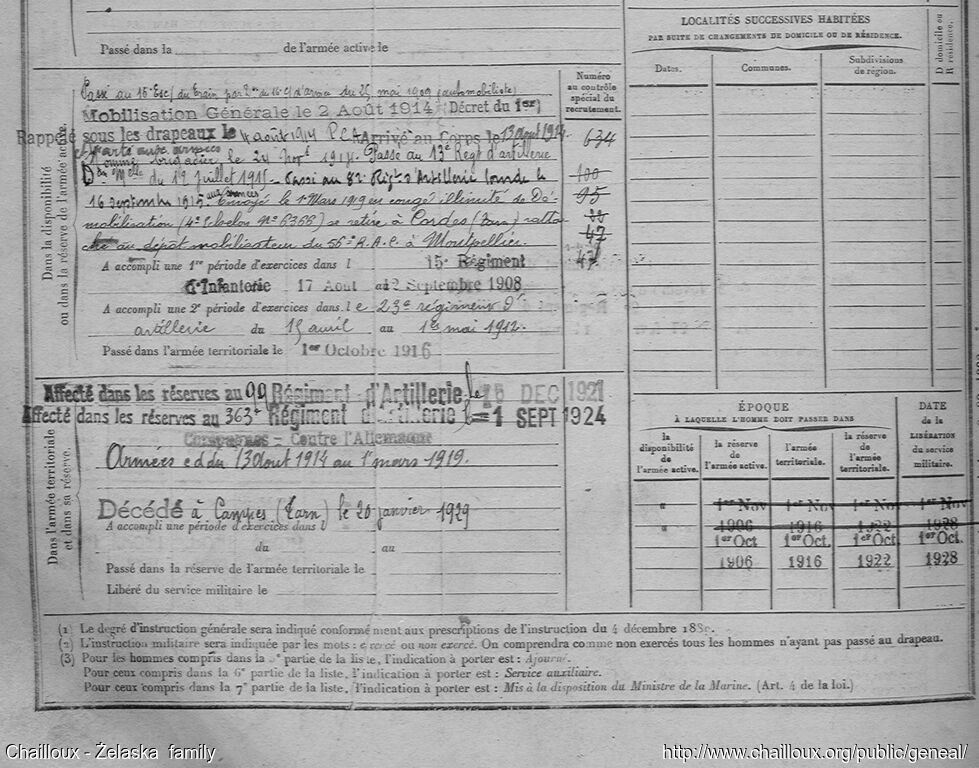 Passé dans la de l'armée active le
Passé au 16e Esc. du train par du 16e C. d'armée du 25 mai 1909 (automobiliste)
Mobilisation Générale le 2 Août 1914 (Décret du 1er)
Rappelé sous les drapeaux le 4 août 1914 Arrivé au Corps le 13 août 1914.
aux armées
Nommé brigadier, le 24 1914. Passé au 13e Regt d'artillerie
Don Melle du 12 juillet 1915 - Passé au 82e Rég. d'Artillerie lourde le
16 septembre 1915 aux armées Envoyé le 1 Mars 1919 en congé illimité de Dé-
mobilisation (4e Echelon No 6366) se retire à Cordes (Tarn) ratta-
ché au dépôt mobilisateur du 56e R.A.C. à Montpellier.
A accompli une 1re période d'exercices dans l 15e Régiment
d'Infanterie 17 Aout au 12 Septembre 1908
A accompli une 2e période d'exercices dans l e 23e régiment d'
artillerie du 15 avril au 1er mai 1912.
Passé dans l'armée territoriale le 1er Octobre 1916
Dans la disponibilité
ou dans la réserve de l'armée active.
Numéro
au contrôle
spécial du
recrutement.
634
100
95
47
LOCALITÉS SUCCESSIVES HABITÉES
PAR SUITE DE CHANGEMENTS DE DOMICILE OU DE RÉSIDENCE.
Dates. Communes. Subdivisions
de région.
D domicile ou
R résidence.
Affecté dans les réserves au 99 Régiment d'Artillerie le 16 DEC 1921
Affecté dans les réserves au 363e Régiment d'Artillerie le = 1 SEPT 1924
Campagnes - Contre l'Allemagne
Armées e d du 13 aout 1914 au 1er mars 1919.
Décédé à Campes (Tarn) le 20 janvier 1929
A accompli une période d'exercices dans l
du au
Passé dans la réserve de l'armée territoriale le
Libéré du service militaire le
Dans l'armée territoriale
et dans sa réserve.
ÉPOQUE
À LAQUELLE L'HOMME DOIT PASSER DANS
DATE
DE LA
LIBÉRATION
du service
militaire.
la
disponibilité
de
l'armée active.
la réserve
de
l'armée active.
l'armée
territoriale.
la réserve
de
l'armée
territoriale.
" 1er Nov 1er Nov 1er Nov 1er Nov
" 1906 1916 1922 1928
1er Oct 1er Oct. 1er Oct 1er Oct.
1906 1916 1922 1928
(1) Le degré d'instruction générale sera indiqué conformément aux prescriptions de l'instruction du 4 décembre
(2) L'instruction militaire sera indiquée par les mots : exercé ou non exercé. On comprendra comme non exercés tous les hommes n'ayant pas passé au drapeau.
(3) Pour les hommes compris dans la 5e partie de la liste, l'indication à porter est : Ajourné.
Pour ceux compris dans la 6e partie de la liste, l'indication à porter est : Service auxiliaire.
Pour ceux compris dans la 7e partie de la liste, l'indication à porter est : Mis à la disposition du Ministre de la Marine. (Art. 4 de la loi.)
Chailloux - Żelaska family
http://www.chailloux.org/public/geneal/